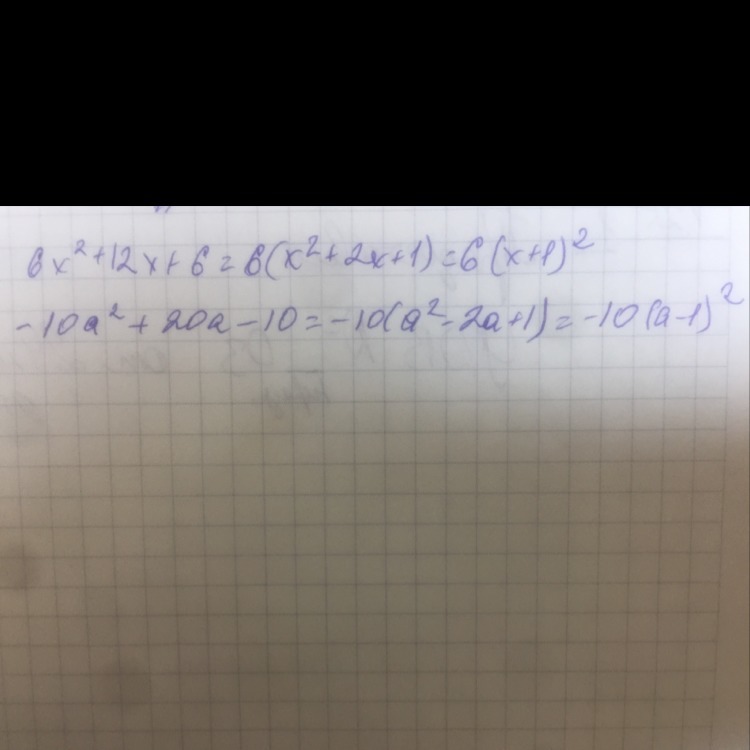 6x²+12x+6=6(x²+2x+1)=6(x+1)²
-10a²+20a-10=-10(a²-2a+1)=-10(a-1)²